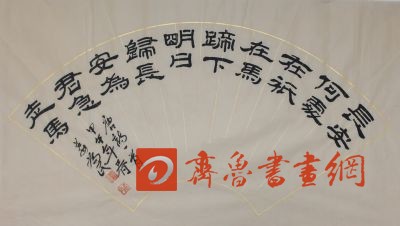 長安
何處
在祇
在馬
蹄下
明日
歸長
安為
君急
走馬
唐詩
甲午年
齊魯書畫網